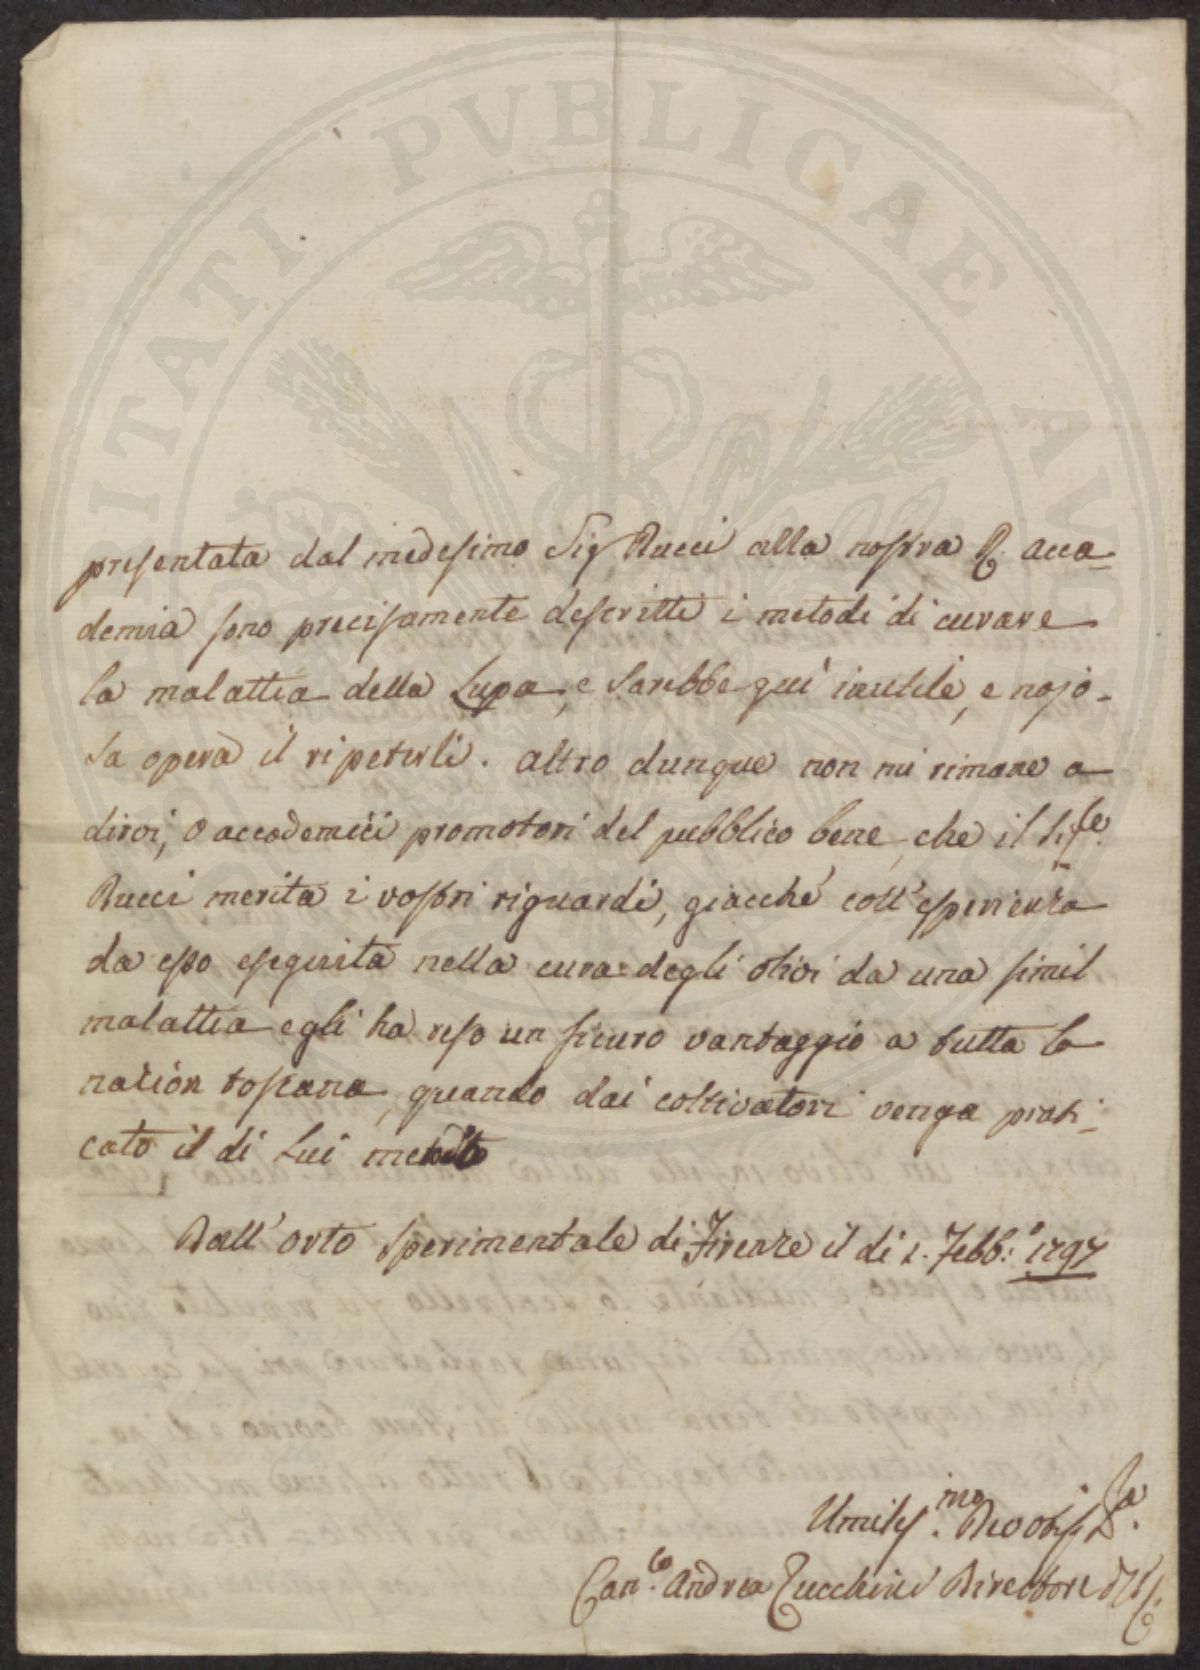 PROSPERITATI PVBLICAE AVGENDAE
presentata dal medesimo Sig Pucci alla nostra R. Acca-
demia sono precisamente descritti i metodi di curare
la malattia della Lupa, e sarebbe quì inutile, e nojo-
sa opera il ripeterli. Altro dunque non mi rimane a
dirvi, o accademici promotori del pubblico bene, che il Sig.re
Pucci merita i vostri riguardi, giacchè coll'esperienza
da esso eseguita nella cura degli olivi da una simil
malattia egli ha reso un sicuro vantaggio a tutta la
nazion toscana, quando dai coltivatori venga prati-
cato il di Lui metodo
Dall'orto sperimentale di Firenze il di 1. Febb.o 1797
Umiliss.mo
Can.co Andrea Zucchini Direttore